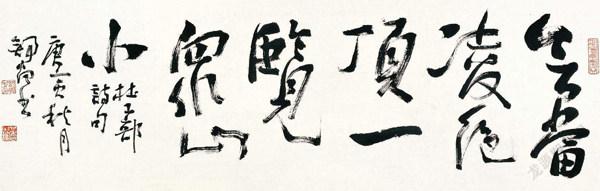 會當
凌絕
頂一
覽
眾山
小
杜工部
詩句
庚寅秋月
書